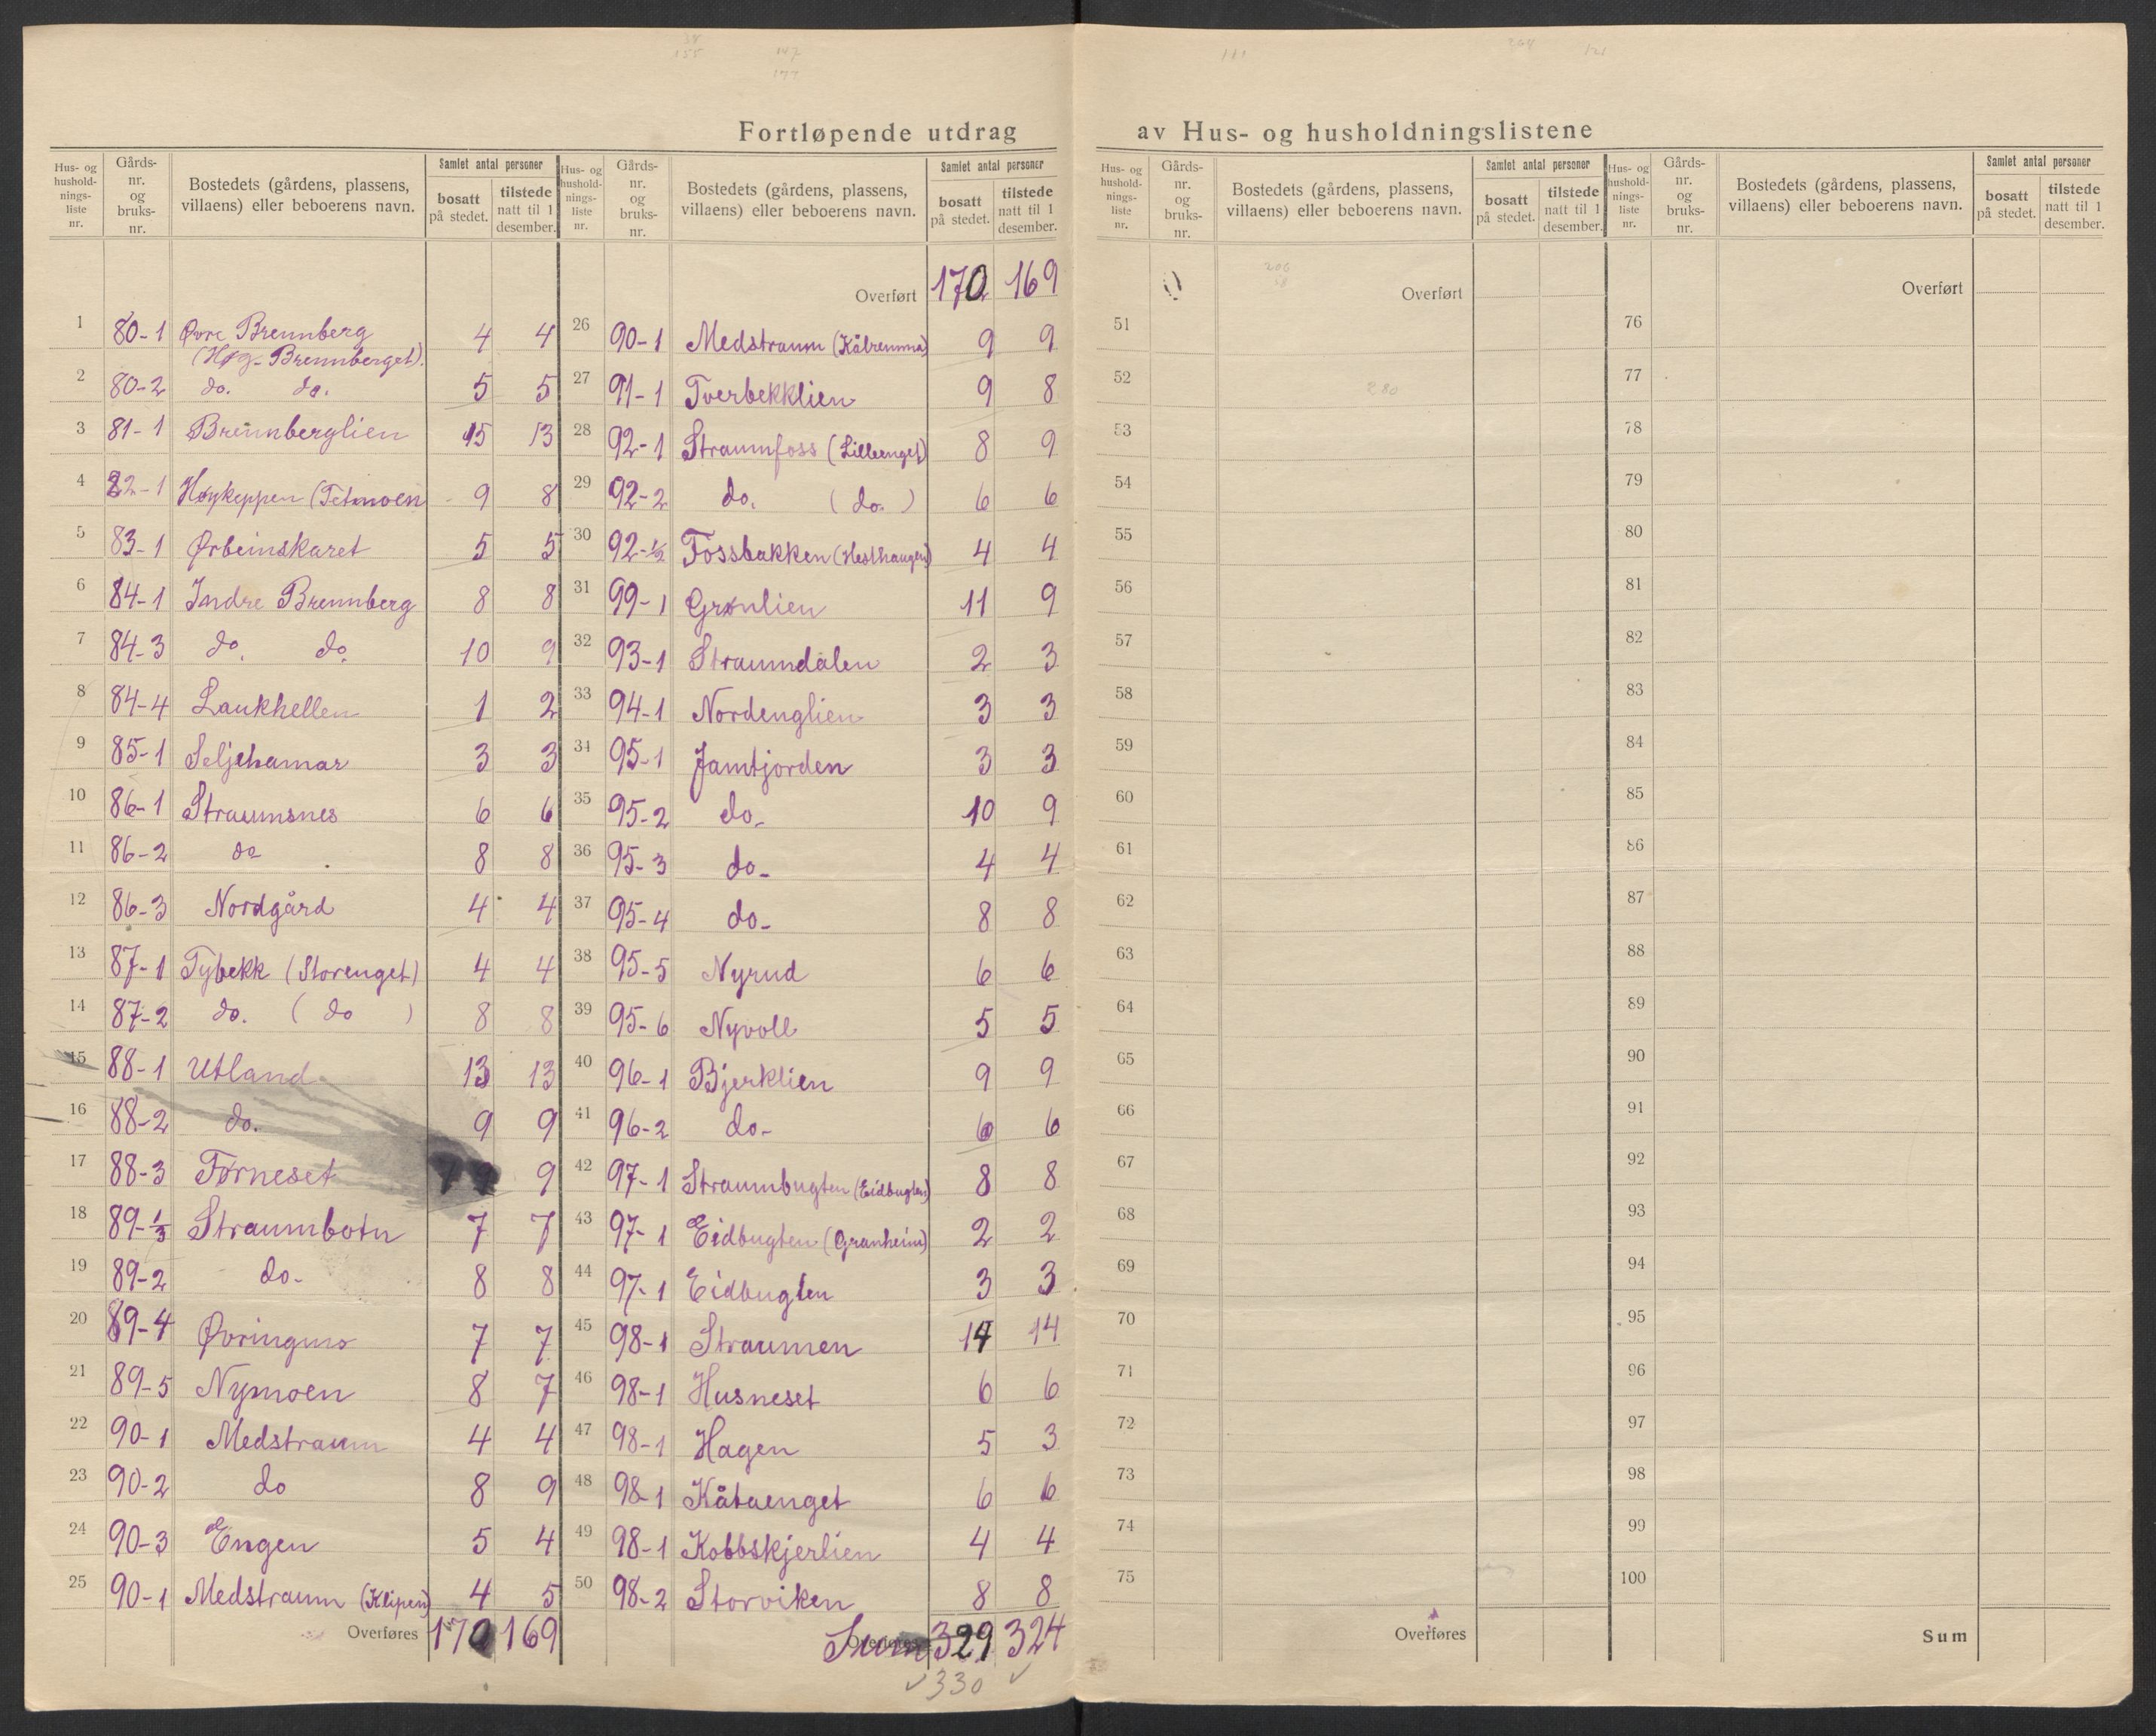 Fortløpende utdrag av Hus- og husholdningslistene
Hus- og hushold-nings-liste nr. | Gårds-nr. og bruks-nr. | Bostedets (gårdens, plassens, villaens) eller beboerens navn. | Samlet antal personer | bosatt på stedet. | tilstede natt til 1 desember.
Hus- og hushold-nings-liste nr. | Gårds-nr. og bruks-nr. | Bostedets (gårdens, plassens, villaens) eller beboerens navn. | Samlet antal personer | bosatt på stedet. | tilstede natt til 1 desember.
1 80-1 Øvre Brennberg (Høg-Brennberget). 4 4
2 80-2 do. do. 5 5
3 81-1 Brennberglien 15 13
4 82-1 Høykeppen (Tetmoen 9 8
5 83-1 Ørbeinskaret 5 5
6 84-1 Indre Brennberg 8 8
7 84-3 do. do. 10 9
8 84-4 Laukhellen 1 2
9 85-1 Seljehamar 3 3
10 86-1 Straumsnes 6 6
11 86-2 do 8 8
12 86-3 Nordgård 4 4
13 87-1 Tybekk (Storenget) 4 4
14 87-2 do. (do) 8 8
15 88-1 Utland 13 13
16 88-2 do. 9 9
17 88-3 Førneset 9
18 89-1/3 Straumbotn 7 7
19 89-2 do- 8 8
20 89-4 Øvringmo 7 7
21 89-5 Nymoen 8 7
22 90-1 Medstraum 4 4
23 90-2 do 8 9
24 90-3 Engen 5 4
25 90-1 Medstraum (Klipen) 4 5
Overføres 170 169
Overført 170 169
26 90-1 Medstraum (Kålremma) 9 9
27 91-1 Tverbekklien 9 8
28 92-1 Straumfoss (Lilleenget) 8 9
29 92-2 do. (do.) 6 6
30 92-1/2 Fossbakken (Hesthaugen) 4 4
31 99-1 Grønlien 11 9
32 93-1 Straumdalen 2 3
33 94-1 Nordenglien 3 3
34 95-1 Jamtjorden 3 3
35 95-2 do- 10 9
36 95-3 do- 4 4
37 95-4 do- 8 8
38 95-5 Nyrud 6 6
39 95-6 Nyvoll 5 5
40 96-1 Bjerklien 9 9
41 96-2 do- 6 6
42 97-1 Straumbugten (Eidbugten) 8 8
43 97-1 Eidbugten (Granheim) 2 2
44 97-1 Eidbugten 3 3
45 98-1 Straumen 14 14
46 98-1 Husneset 6 6
47 98-1 Hagen 5 3
48 98-1 Kåtaenget 6 6
49 98-1 Kobbskjerlien 4 4
50 98-2 Storviken 8 8
Overføres Sum 329 324
✓330 ✓
Hus- og hushold-nings-liste nr. | Gårds-nr. og bruks-nr. | Bostedets (gårdens, plassens, villaens) eller beboerens navn. | Samlet antal personer | bosatt på stedet. | tilstede natt til 1 desember.
Overført
51
52 280
53
54
55
56
57
58
59
60
61
62
63
64
65
66
67
68
69
70
71
72
73
74
75
Overføres
Hus- og hushold-nings-liste nr. | Gårds-nr. og bruks-nr. | Bostedets (gårdens, plassens, villaens) eller beboerens navn. | Samlet antal personer | bosatt på stedet. | tilstede natt til 1 desember.
Overført
76
77
78
79
80
81
82
83
84
85
86
87
88
89
90
91
92
93
94
95
96
97
98
99
100
Sum